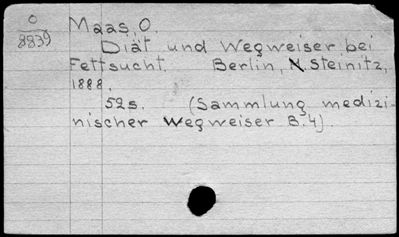 O
8839
Maas, O.
Diät und Wegweiser bei
Fettsucht. Berlin, Steinitz,
1888.
52s. (Sammlung medizi-
nischer Wegweiser B.4).